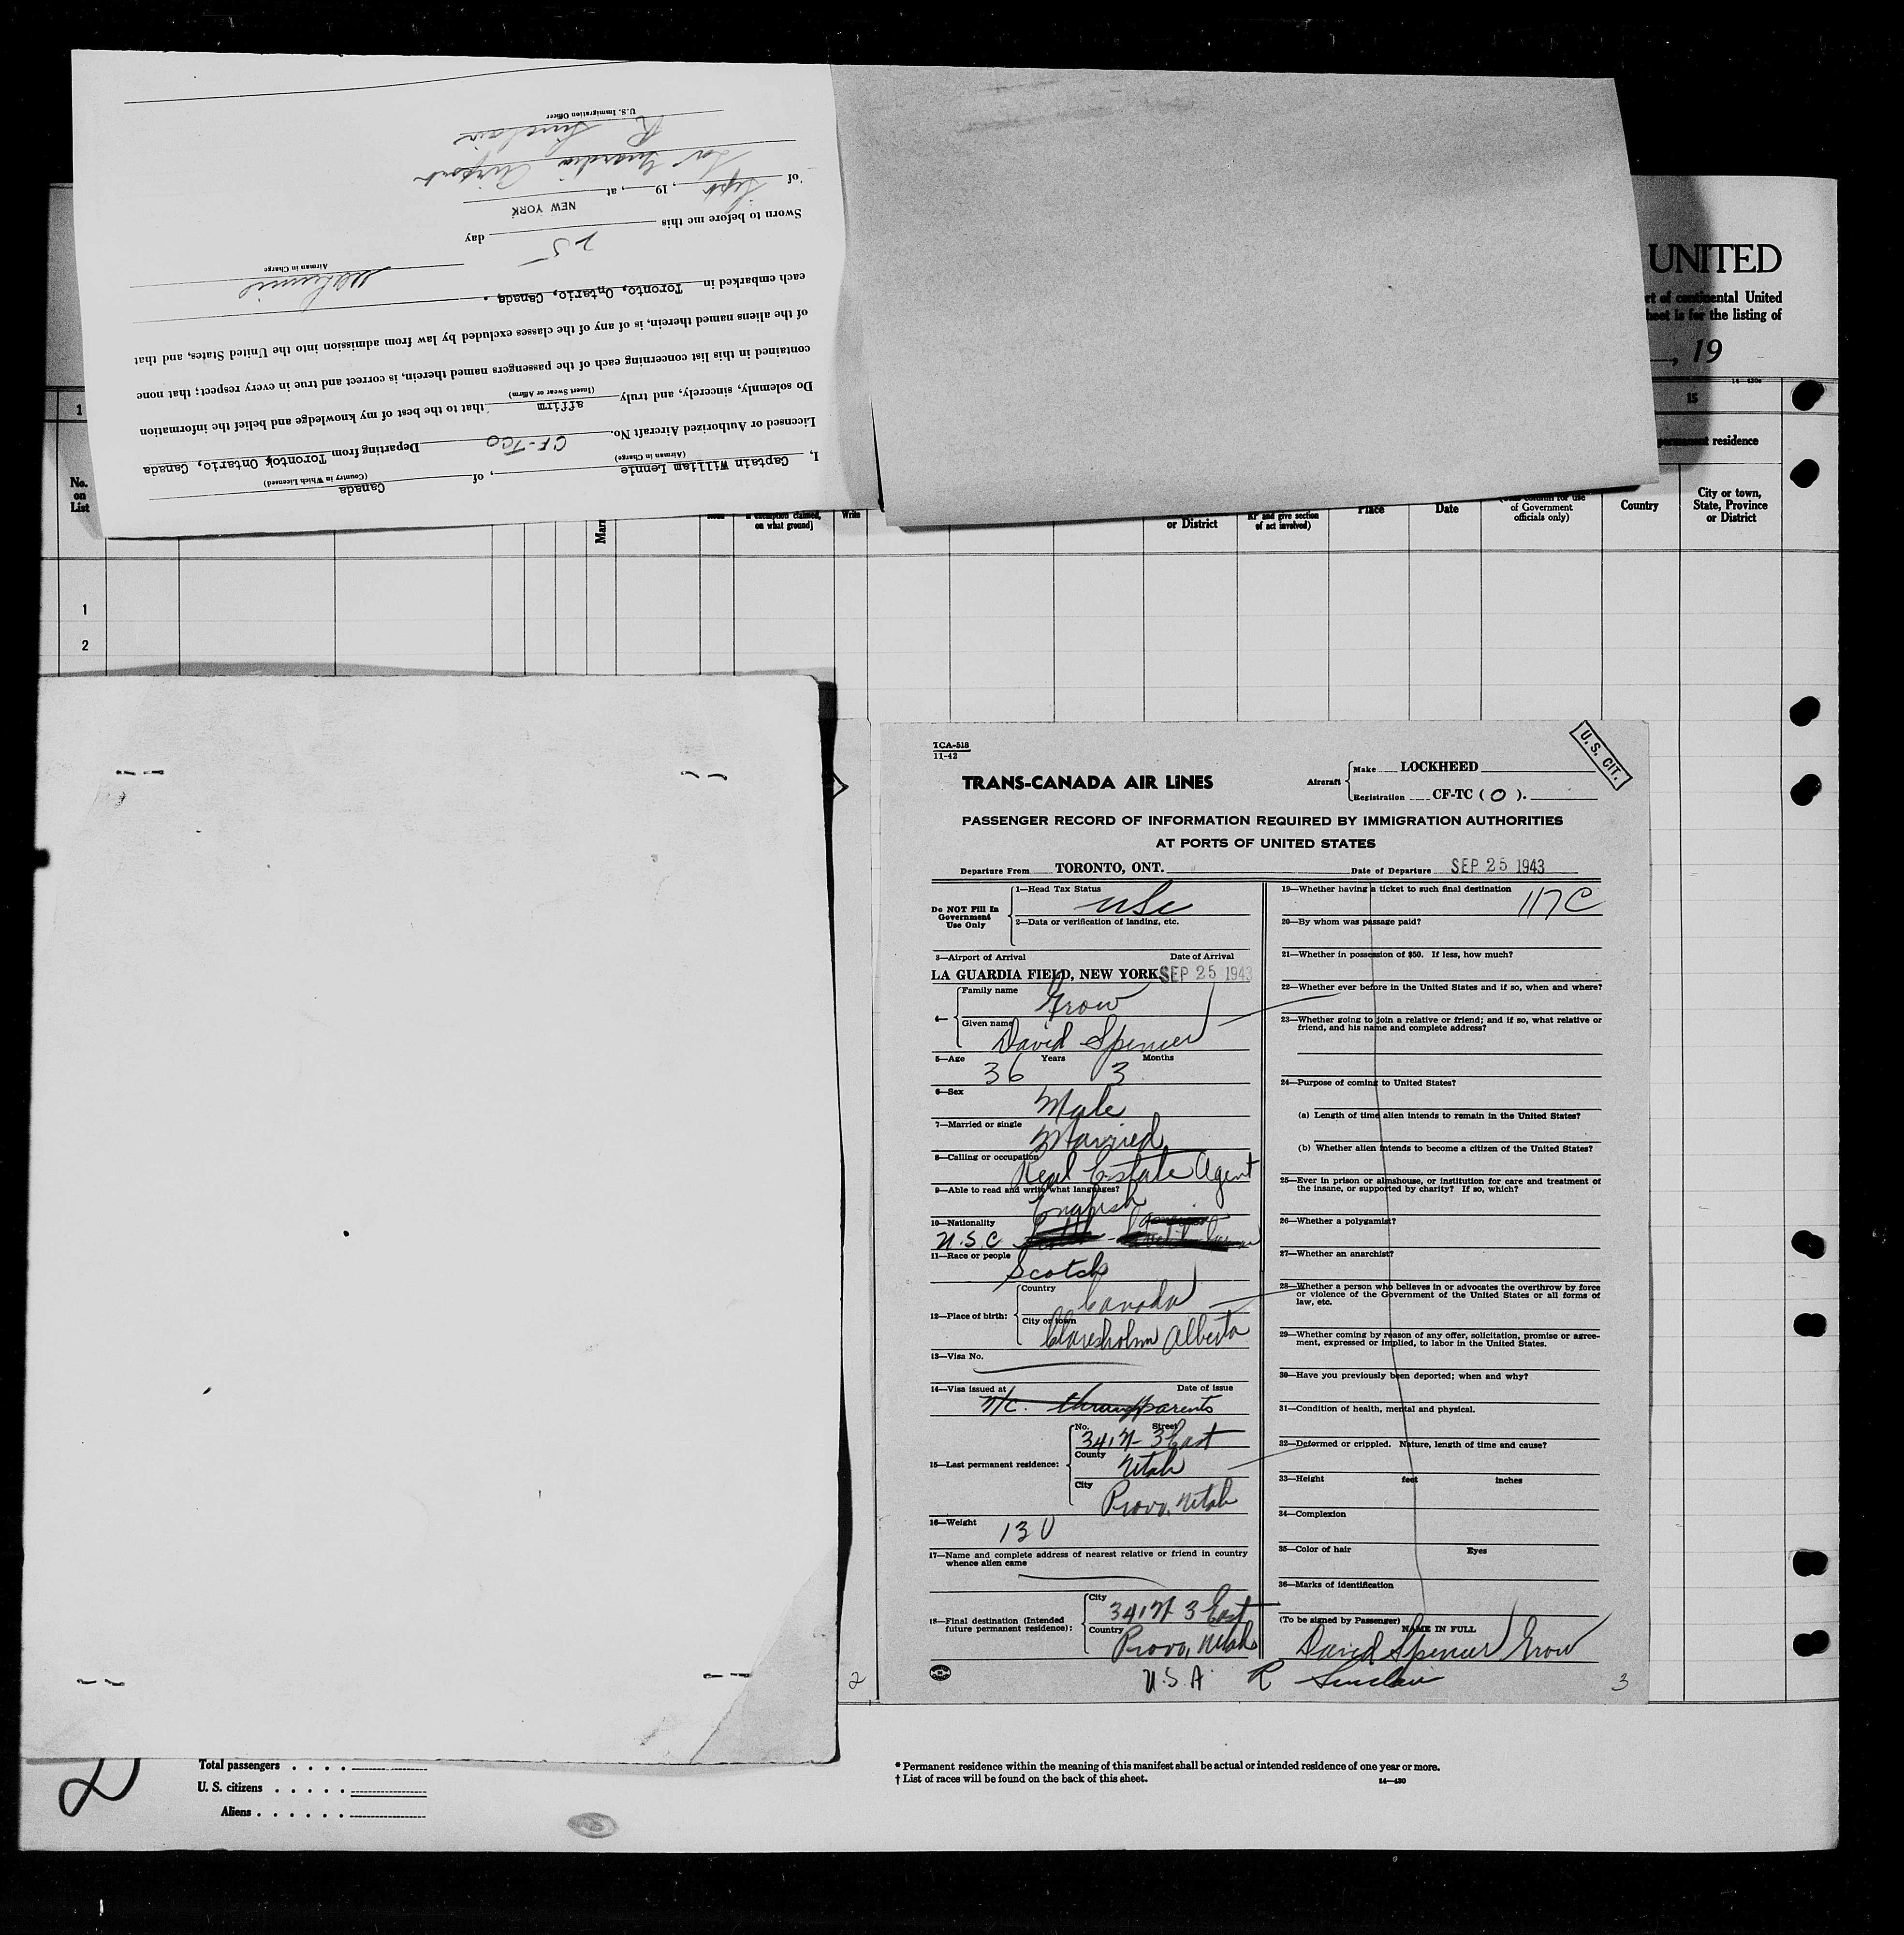 I, Captain William Lennie, of Canada
(Airman in Charge) (Country in Which Licensed)
Licensed or Authorized Aircraft No. CF-TCO Departing from Toronto, Ontario, Canada
Do solemnly, sincerely, and truly affirm that to the best of my knowledge and belief the information
(Insert Swear or Affirm)
contained in this list concerning each of the passengers named therein, is correct and true in every respect; that none
of the aliens named therein, is of any of the classes excluded by law from admission into the United States, and that
each embarked in Toronto, Ontario, Canada.
Airman in Charge
Sworn to before me this 25 day
of Sept, 19 , at NEW YORK
La Guardia Airport
R Sinclair
U.S. Immigration Officer
UNITED
rt of continental United
heet is for the listing of
, 19
1
15
permanent residence
No.
on
List
on what ground)
Write
or District
RP and give section
of act involved)
Place
Date
of Government
officials only)
Country
City or town,
State, Province
or District
1
2
TCA-518
11-42
U. S. CIT.
TRANS-CANADA AIR LINES
Aircraft
Make LOCKHEED
Registration CF-TC ( O ).
PASSENGER RECORD OF INFORMATION REQUIRED BY IMMIGRATION AUTHORITIES
AT PORTS OF UNITED STATES
Departure From TORONTO, ONT. Date of Departure SEP 25 1943
Do NOT Fill In
Government
Use Only
1—Head Tax Status
USC
2—Data or verification of landing, etc.
3—Airport of Arrival Date of Arrival
LA GUARDIA FIELD, NEW YORK SEP 25 1943
4—
Family name
Grow
Given name
David Spencer
5—Age 36 Years 3 Months
6—Sex
Male
7—Married or single
Married
8—Calling or occupation
Real Estate Agent
9—Able to read and write what languages?
English
10—Nationality
U.S.C
11—Race or people
Scotch
12—Place of birth:
Country
Canada
City or town
Claresholm Alberta
13—Visa No.
14—Visa issued at Date of issue
N/C. through parents
15—Last permanent residence:
No. Street
341 N- 3 East
County
Utah
City
Provo, Utah
16—Weight 130
17—Name and complete address of nearest relative or friend in country
whence alien came
18—Final destination (Intended
future permanent residence):
City
341 N 3 East
Country
Provo, Utah
U.S.A.
19—Whether having a ticket to such final destination
117C
20—By whom was passage paid?
21—Whether in possession of $50. If less, how much?
22—Whether ever before in the United States and if so, when and where?
23—Whether going to join a relative or friend; and if so, what relative or
friend, and his name and complete address?
24—Purpose of coming to United States?
(a) Length of time alien intends to remain in the United States?
(b) Whether alien intends to become a citizen of the United States?
25—Ever in prison or almshouse, or institution for care and treatment of
the insane, or supported by charity? If so, which?
26—Whether a polygamist?
27—Whether an anarchist?
28—Whether a person who believes in or advocates the overthrow by force
or violence of the Government of the United States or all forms of
law, etc.
29—Whether coming by reason of any offer, solicitation, promise or agree-
ment, expressed or implied, to labor in the United States.
30—Have you previously been deported; when and why?
31—Condition of health, mental and physical.
32—Deformed or crippled. Nature, length of time and cause?
33—Height feet inches
34—Complexion
35—Color of hair Eyes
36—Marks of identification
(To be signed by Passenger)
NAME IN FULL
David Spencer Grow
R Sinclair
2
3
Total passengers
U. S. citizens
Aliens
* Permanent residence within the meaning of this manifest shall be actual or intended residence of one year or more.
† List of races will be found on the back of this sheet.
14—430